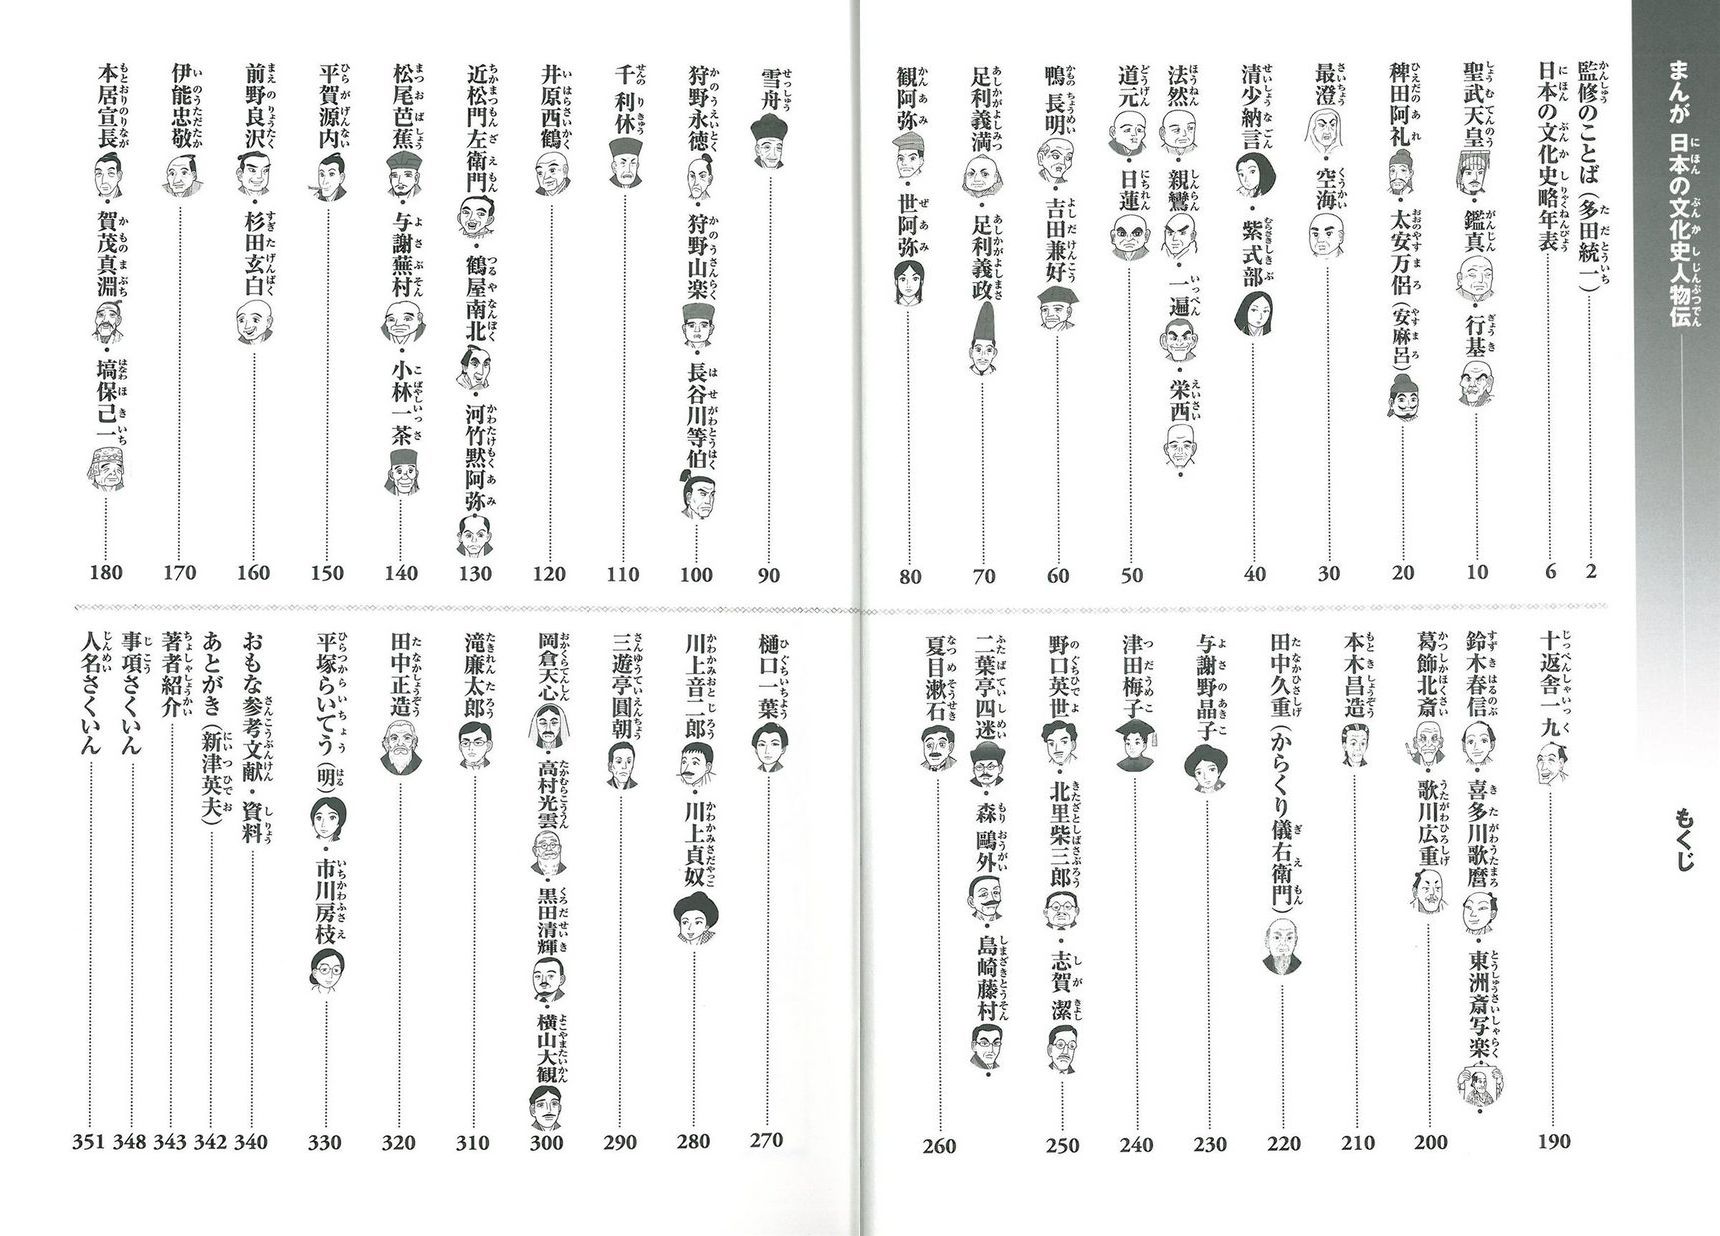 まんが 日本の文化史人物伝 もくじ
監修のことば(多田統一) 2
日本の文化史略年表 6
聖武天皇・鑑真・行基 10
稗田阿礼・太安万侶(安麻呂) 20
最澄・空海 30
清少納言・紫式部 40
法然・親鸞・一遍・栄西・
道元・日蓮 50
鴨 長明・吉田兼好 60
足利義満・足利義政 70
観阿弥・世阿弥 80
雪舟 90
狩野永徳・狩野山楽・長谷川等伯 100
千 利休 110
井原西鶴 120
近松門左衛門・鶴屋南北・河竹黙阿弥 130
松尾芭蕉・与謝蕪村・小林一茶 140
平賀源内 150
前野良沢・杉田玄白 160
伊能忠敬 170
本居宣長・賀茂真淵・塙保己一 180
十返舎一九 190
鈴木春信・喜多川歌麿・東洲斎写楽・
葛飾北斎・歌川広重 200
本木昌造 210
田中久重(からくり儀右衛門) 220
与謝野晶子 230
津田梅子 240
野口英世・北里柴三郎・志賀 潔 250
二葉亭四迷・森 鷗外・島崎藤村・
夏目漱石 260
樋口一葉 270
川上音二郎・川上貞奴 280
三遊亭圓朝 290
岡倉天心・高村光雲・黒田清輝・横山大観 300
滝廉太郎 310
田中正造 320
平塚らいてう(明)・市川房枝 330
おもな参考文献・資料 340
あとがき(新津英夫) 342
著者紹介 343
事項さくいん 348
人名さくいん 351